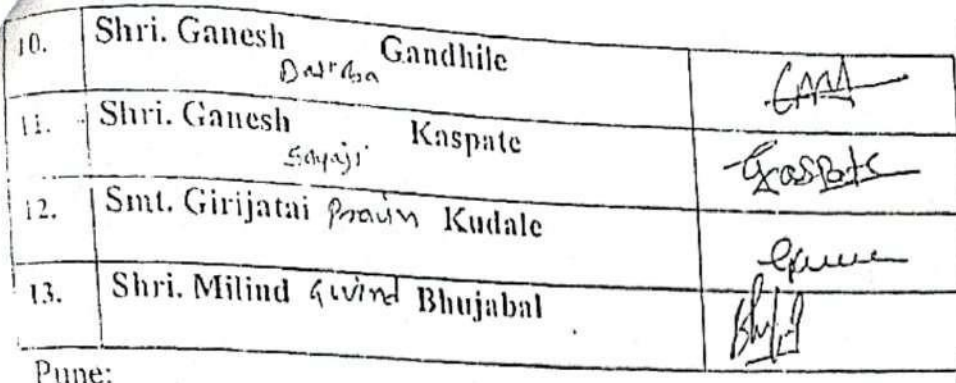 10. Shri. Ganesh Gandhile
11. Shri. Ganesh Sayaji Kaspate
Kaspate
12. Smt. Girijatai Pravin Kudale
13. Shri. Milind Govind Bhujabal
Pune: